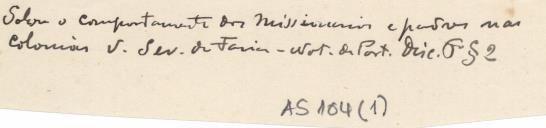 Sobre o comportamento dos Missionarios e padres nas
colonias v. Sev. de Faria - Not. de Port. Disc. § 2
AS 104 (1)